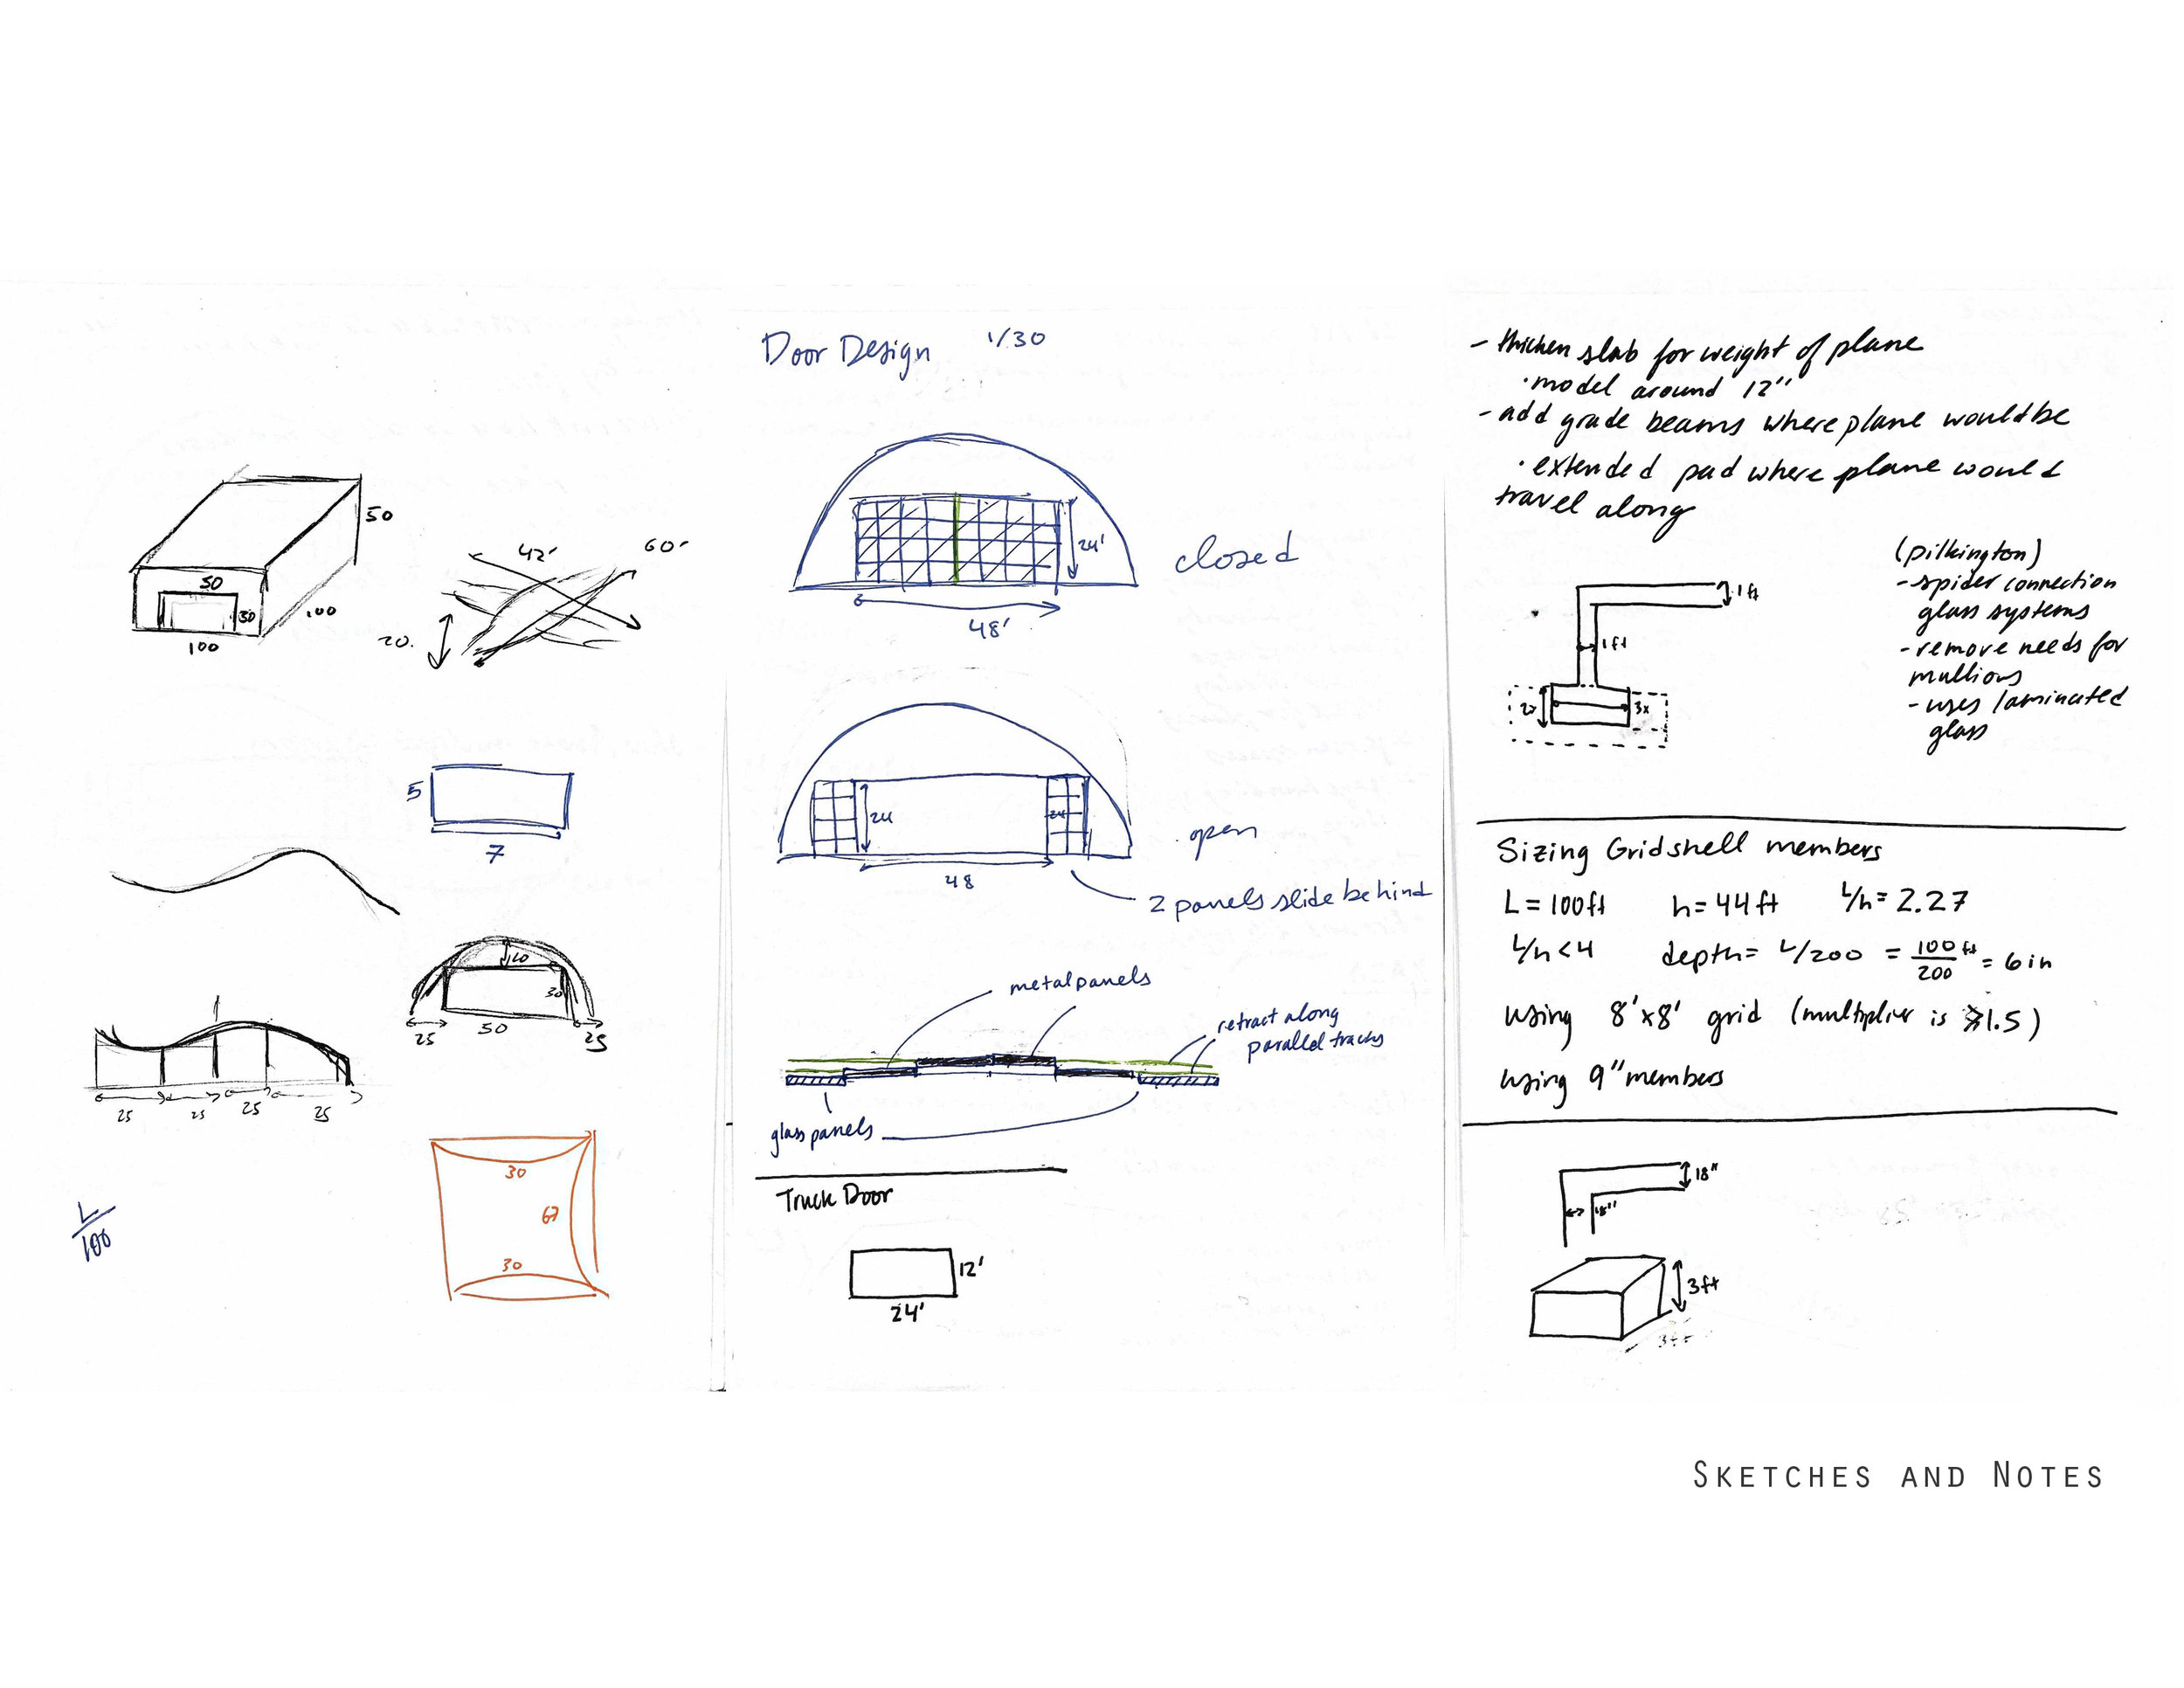 50
50
30
100
100
42'
60'
20.
5
7
10
30
25
50
25
25
25
25
25
L/100
30
67
30
Door Design 1/30
24'
closed
48'
24
24
open
48
2 panels slide behind
metal panels
retract along
parallel tracks
glass panels
Truck Door
12'
24'
- thicken slab for weight of plane
· model around 12"
- add grade beams where plane would be
· extended pad where plane would
travel along
(pilkington)
- spider connection
glass systems
- remove needs for
mullions
- uses laminated
glass
1 ft
1 ft
2x
3x
Sizing Gridshell members
L = 100 ft h = 44 ft L/h = 2.27
L/h < 4 depth = L/200 = 100 ft/200 = 6 in
using 8'x8' grid (multiplier is 1.5)
using 9" members
18"
18"
3 ft
3 ft
SKETCHES AND NOTES